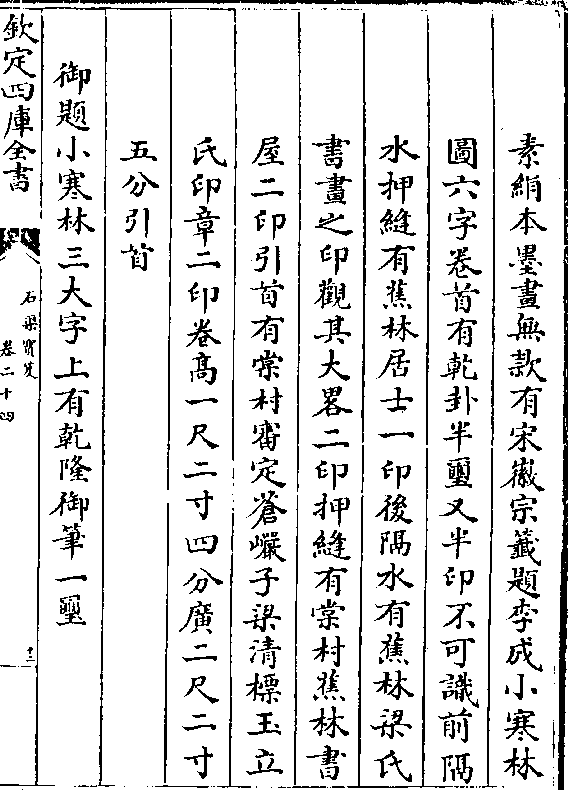 素絹本墨畫無款有宋徽宗籤題李成小寒林
圖六字卷首有乾卦半璽又半印不可識前隔
水押縫有蕉林居士一印後隔水有蕉林梁氏
書畫之印觀其大畧二印押縫有棠村蕉林書
屋二印引首有棠村審定蒼巖子梁清標玉立
氏印章二印卷髙一尺二寸四分廣二尺二寸
五分引首
御題小寒林三大字上有乾隆御筆一璽
欽定四庫全書
石渠寳笈
卷二十四
十二